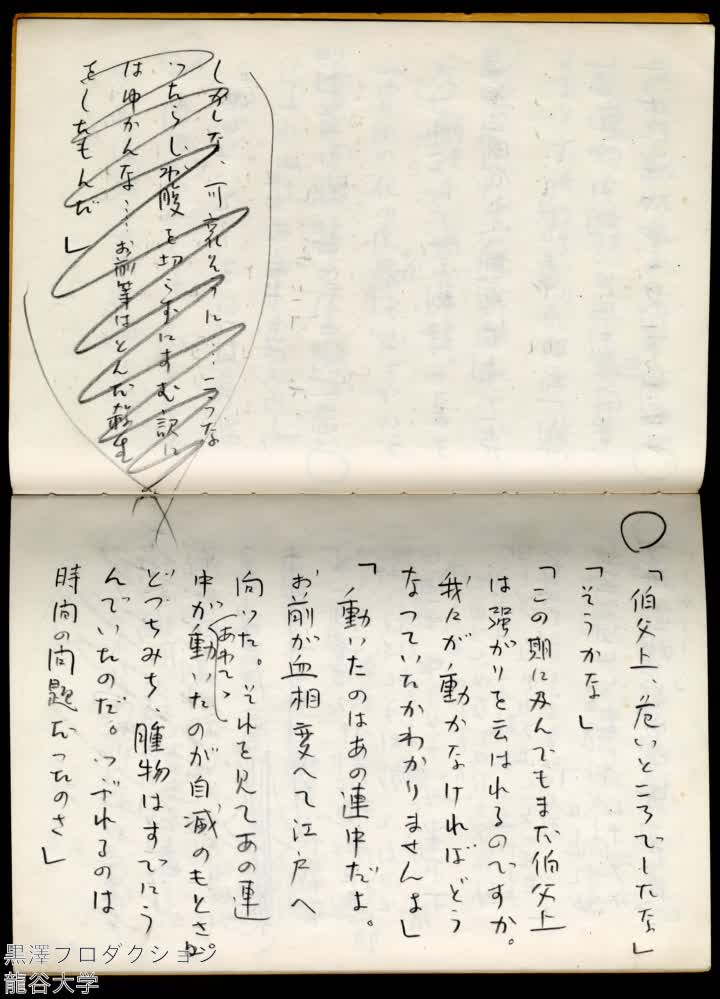 しかしな、可哀そうに…こうな
つたらしわ腹を切らずにすむ訳に
はゆかんな…お前等はとんだ殺生
をしたもんだ」
○
「伯父上、危いところでしたな」
「そうかな」
「この期に及んでもまだ伯父上
は强がりを云はれるのですか。
我々が動かなければどう
なつていたかわかりませんよ」
「動いたのはあの連中だよ。
お前が血相変へて江戸へ
向つた。それを見てあの連
中が(あわてゝ)動いたのが自滅のもとさ。
どつちみち、腫物はすでにう
んでいたのだ。つぶれるのは
時间の问題だつたのさ」
黒澤プロダクション
龍谷大学